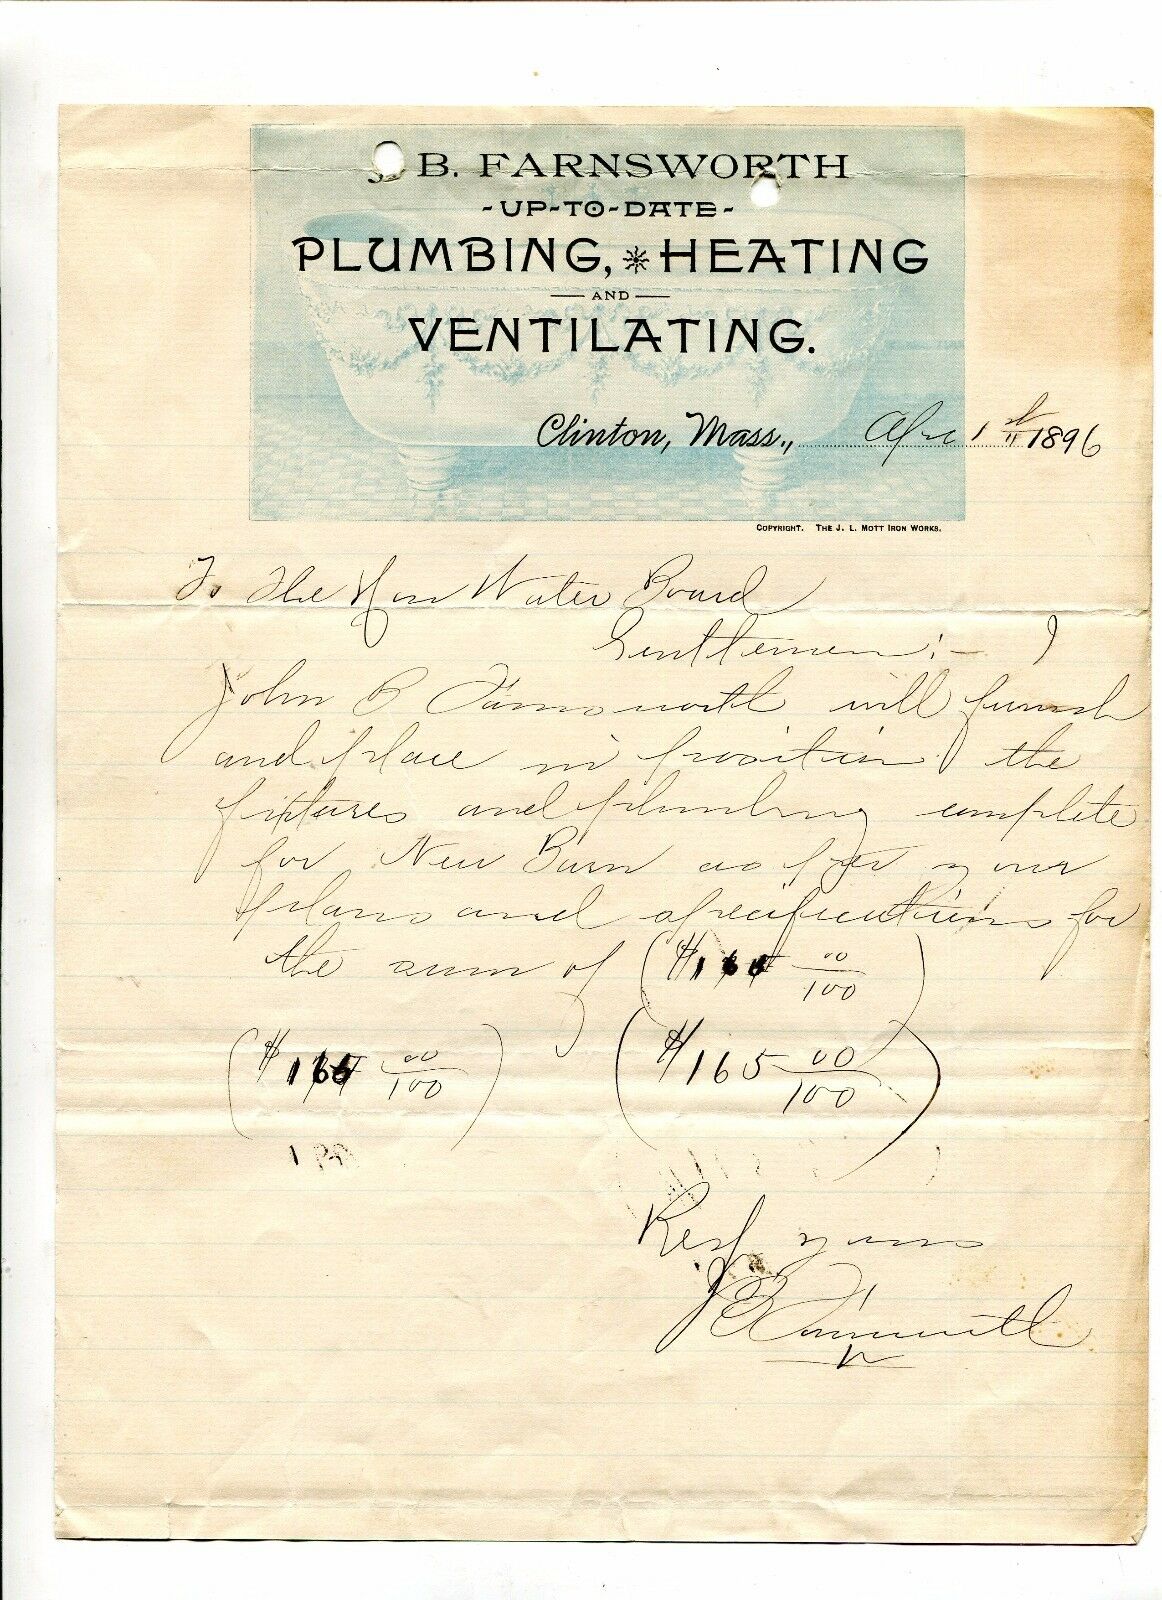 J. B. FARNSWORTH
-UP-TO-DATE-
PLUMBING, HEATING
AND
VENTILATING.
Clinton, Mass., Apr 1st 1896
COPYRIGHT. THE J. L. MOTT IRON WORKS.
To The Hon Water Board
Gentlemen:-
John B Farnsworth will furnish
and place in position the
fixtures and plumbing complete
for New Barn as per your
plans and specifications for
the sum of ($ 00/100)
($ 00/100) ($165 00/100)
Resp yours
J B Farnsworth